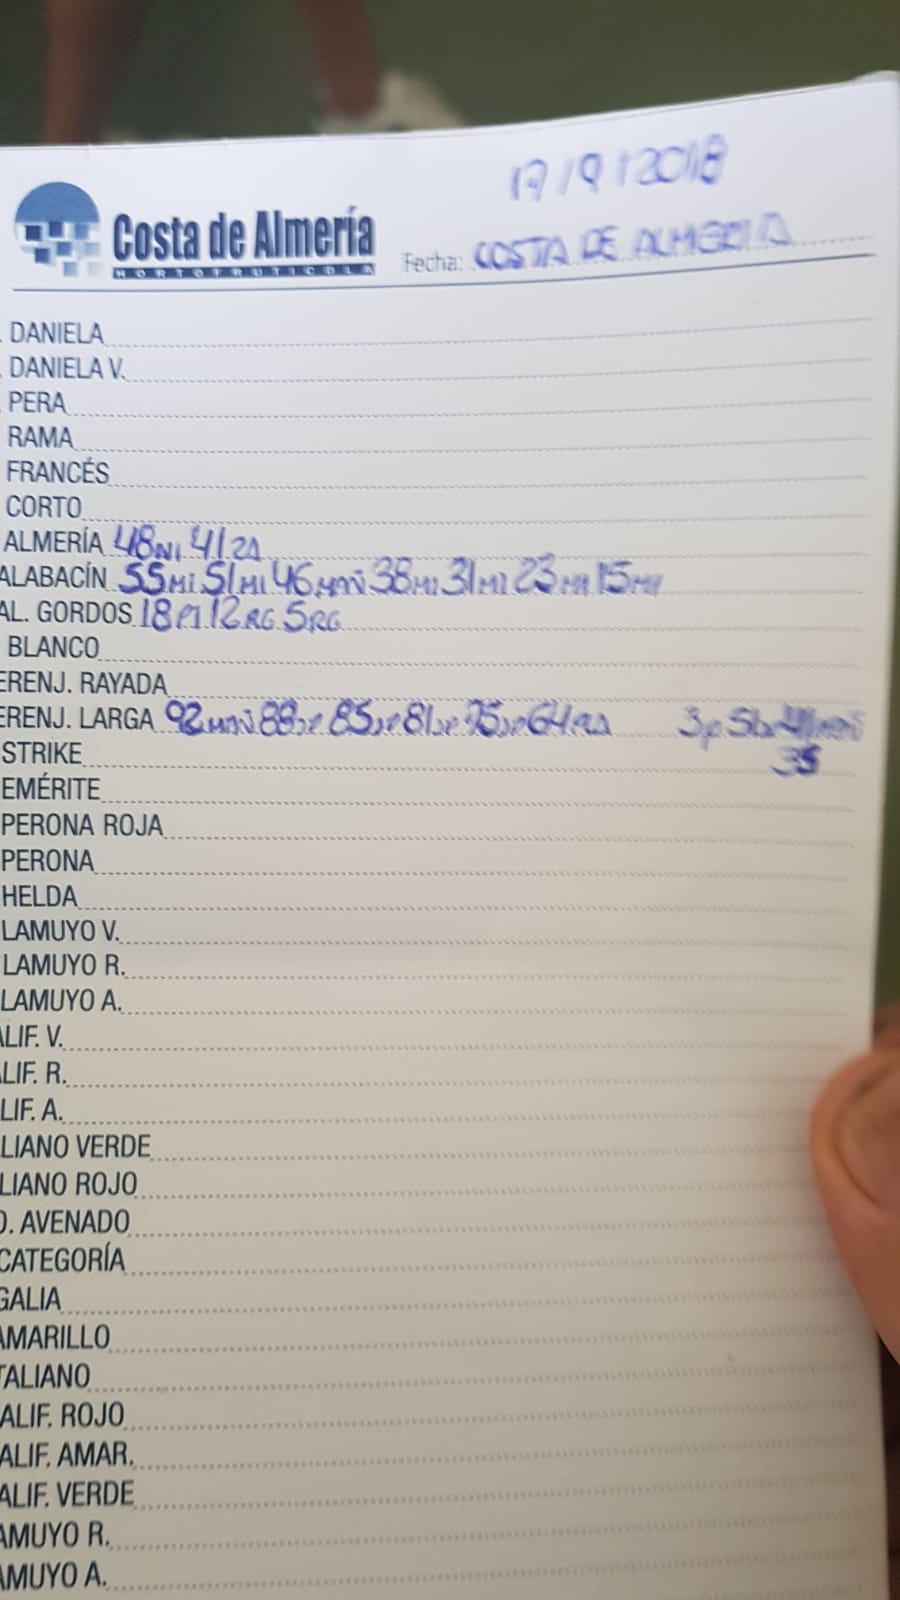 17/9/2018
Costa de Almería
HORTOFRUTICOLA
Fecha: COSTA DE ALMERIA
DANIELA
DANIELA V.
PERA
RAMA
FRANCÉS
CORTO
ALMERÍA 48NI 41ZA
ALABACÍN 55MI 51MI 46MAÑ 38MI 31MI 23MA 15
AL. GORDOS 18 12RG 5RG
BLANCO
ERENJ. RAYADA
ERENJ. LARGA 92MAÑ 88 85 81 75 64 3p
STRIKE 35
EMÉRITE
PERONA ROJA
PERONA
HELDA
LAMUYO V.
LAMUYO R.
LAMUYO A.
LIF. V.
LIF. R.
LIF. A.
LIANO VERDE
LIANO ROJO
O. AVENADO
CATEGORÍA
GALIA
AMARILLO
TALIANO
ALIF. ROJO
ALIF. AMAR.
ALIF. VERDE
AMUYO R.
AMUYO A.